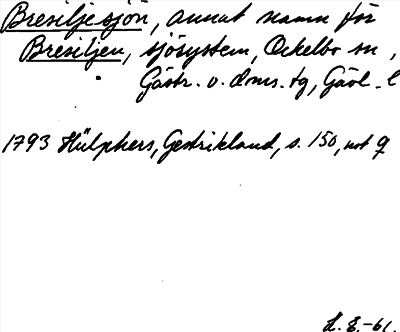 Bresiljesjön, annat namn för
Bresiljen, sjösystem, Ockelbo sn,
Gästr. v. doms. tg, Gävl. l
1793 Hülphers, Gestrikland, s. 150, not q
H. E. -61.